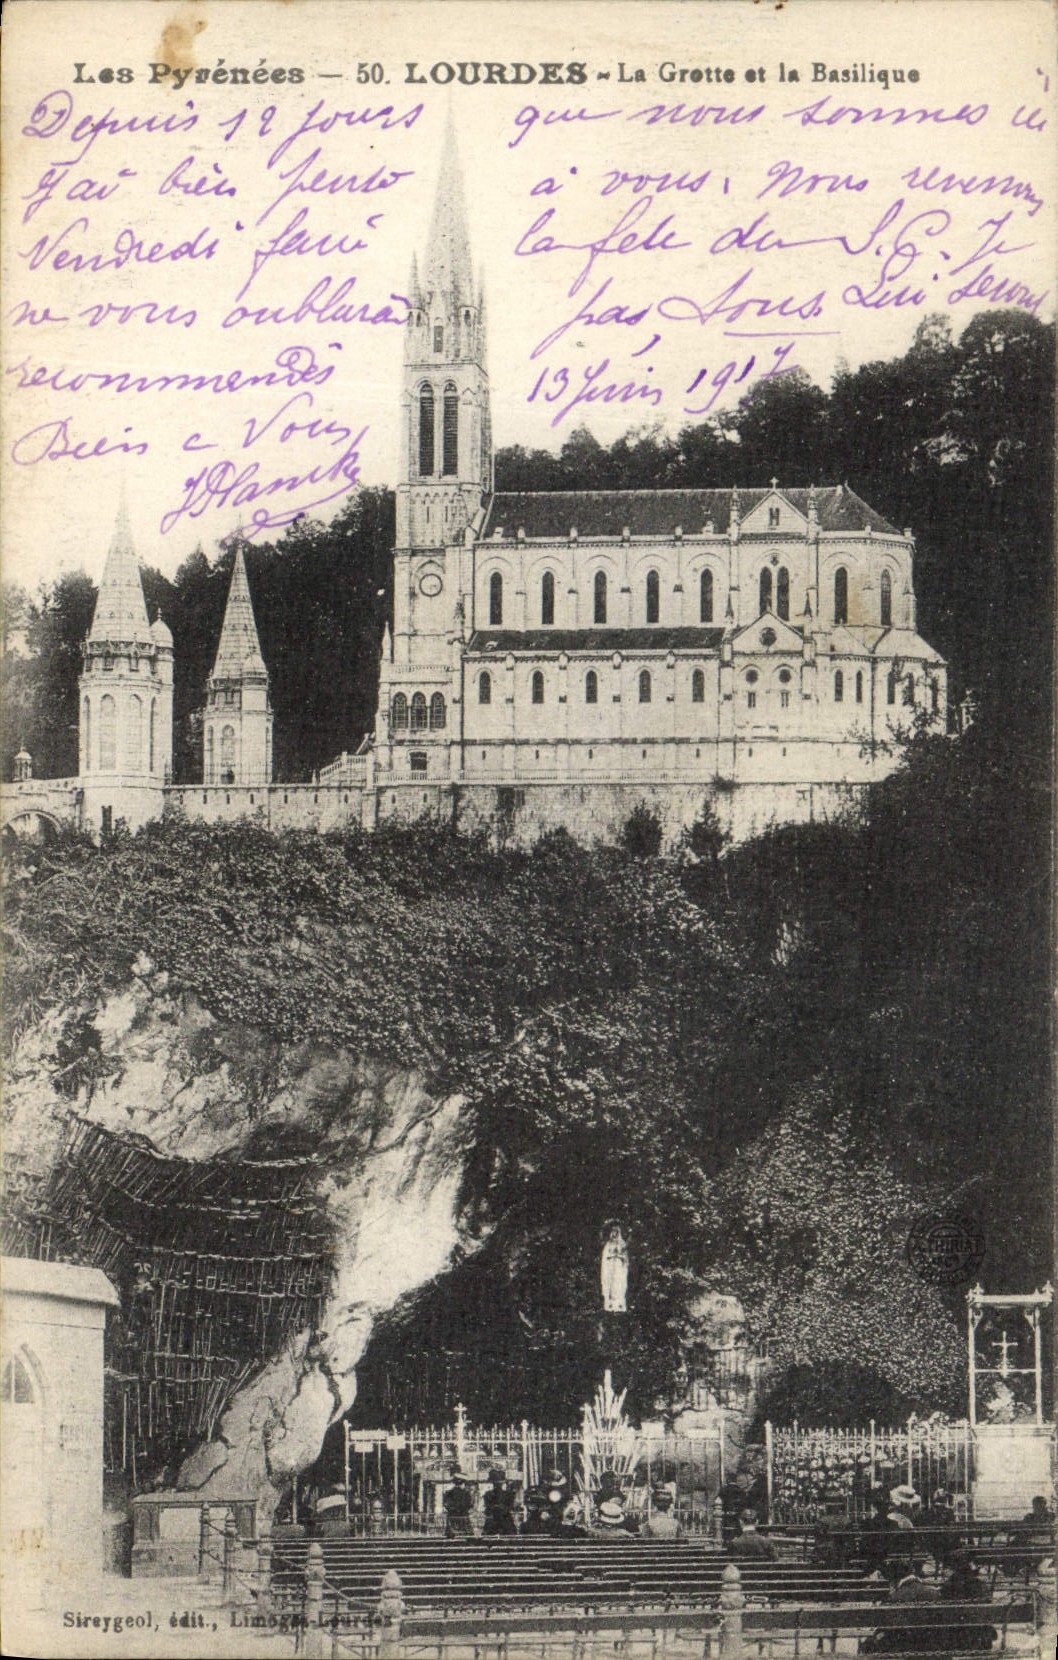 Les Pyrénées — 50. LOURDES - La Grotte et la Basilique
Depuis 12 jours que nous sommes ici
J'ai bien pensé à vous. Nous revenons
Vendredi la fête du S.C. Je
ne vous oublierai pas, Vous Lui serons
recommandés 13 Juin 1917
Bien a Vous
Sireygeol, édit., Limoges-Lourdes